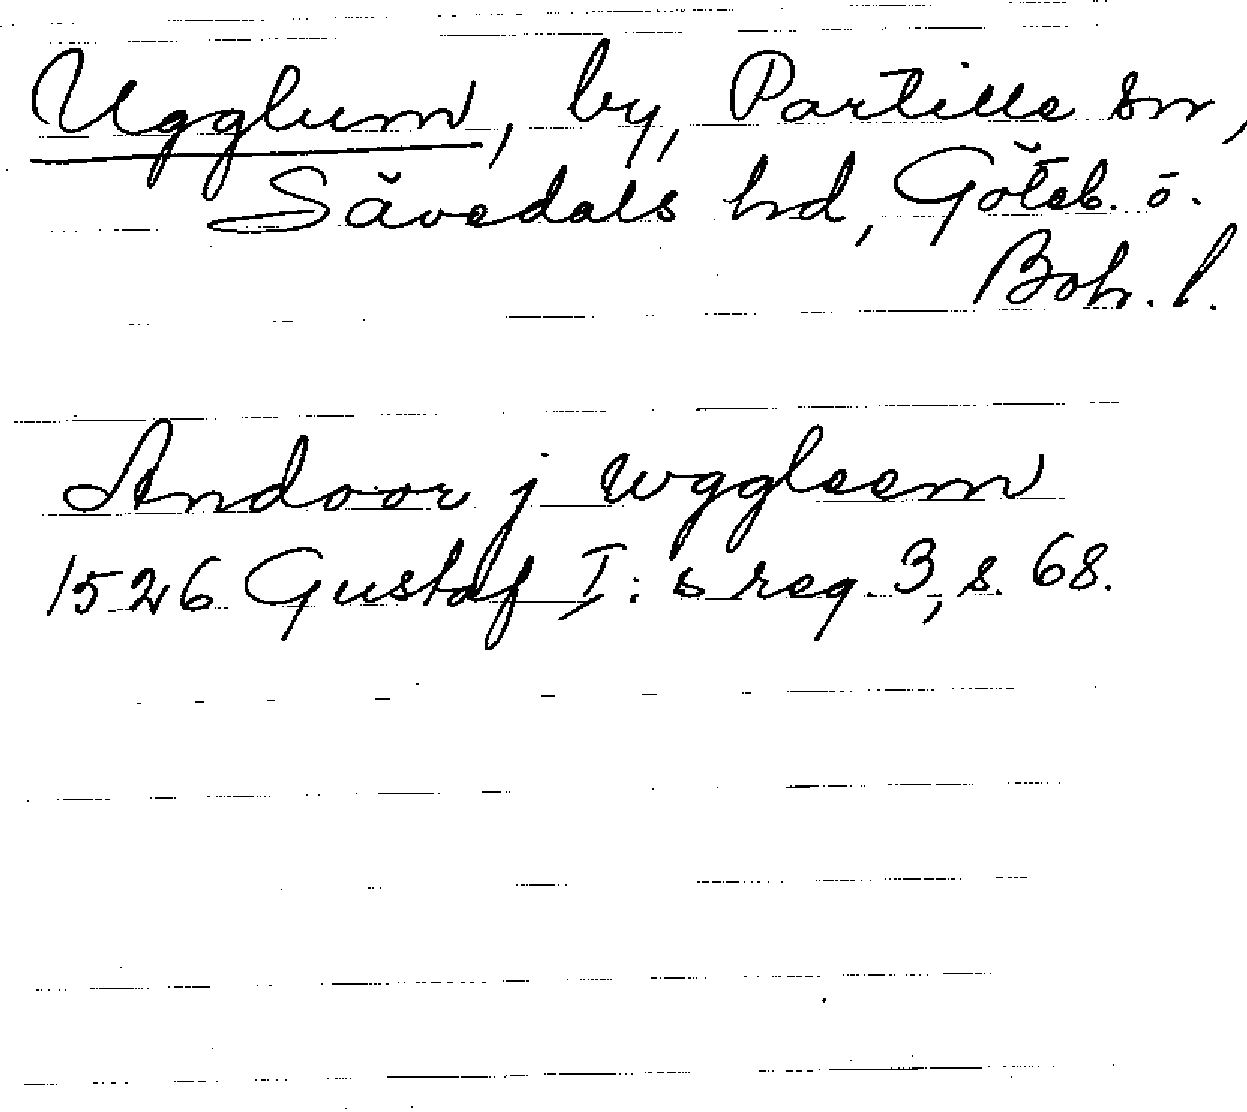 Ugglum, by, Partille sn,
Sävedals hd, Göteb. o.
Boh. l.
Andoor j wggleem
1526 Gustaf I: s reg. 3, s. 68.